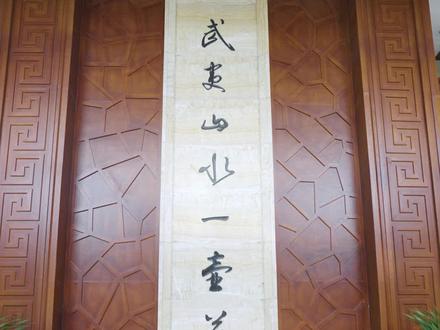 武夷山水一壶